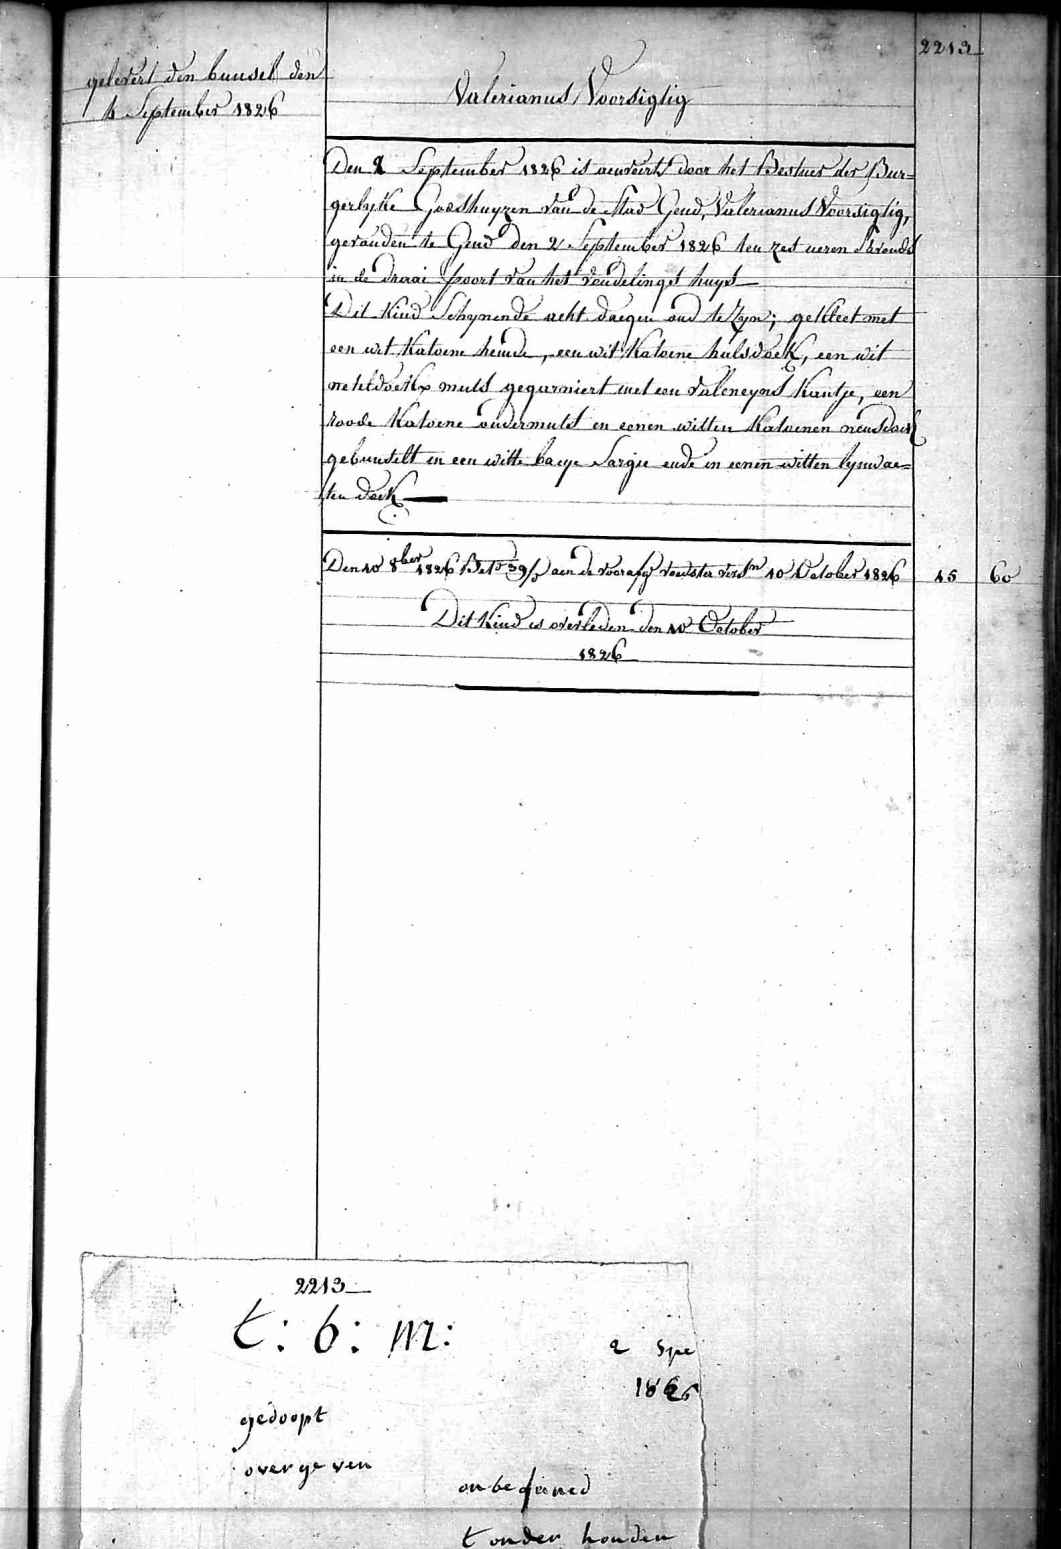 2213
gelevert den bunsel den
4 September 1826
Valerianus Voorsigtig
Den 2 September 1826 is aenveirt door het Bestuer der Bur=
gerlyke Godshuyzen van de Stad Gend, Valerianus Voorsigtig,
gevonden te Gend den 2 September 1826 ten zes ueren s'avonds
in de draai poort van het vondelings huys
Dit Kind Schynende acht daegen oud te Zyn; gekleet met
een wit Katoene hemde, een wit Katoene halsdoek, een wit
neteldoekx muts gegarniert met een valencyns Kantje, een
roode Katoene ondermuts en eenen witten Katoenen neusdoek
gebunselt in een witte baeye Sargie ende in eenen witten lynwae=
ten doek
Den 10 8ber 1826 aen de voorafg voedster 10 October 1826 15 60
Dit Kind is overleden den 10 October
1826
2213
t: b: m:
2 Spe
1826
gedoopt
overgeven
onbefaned
t onder houden